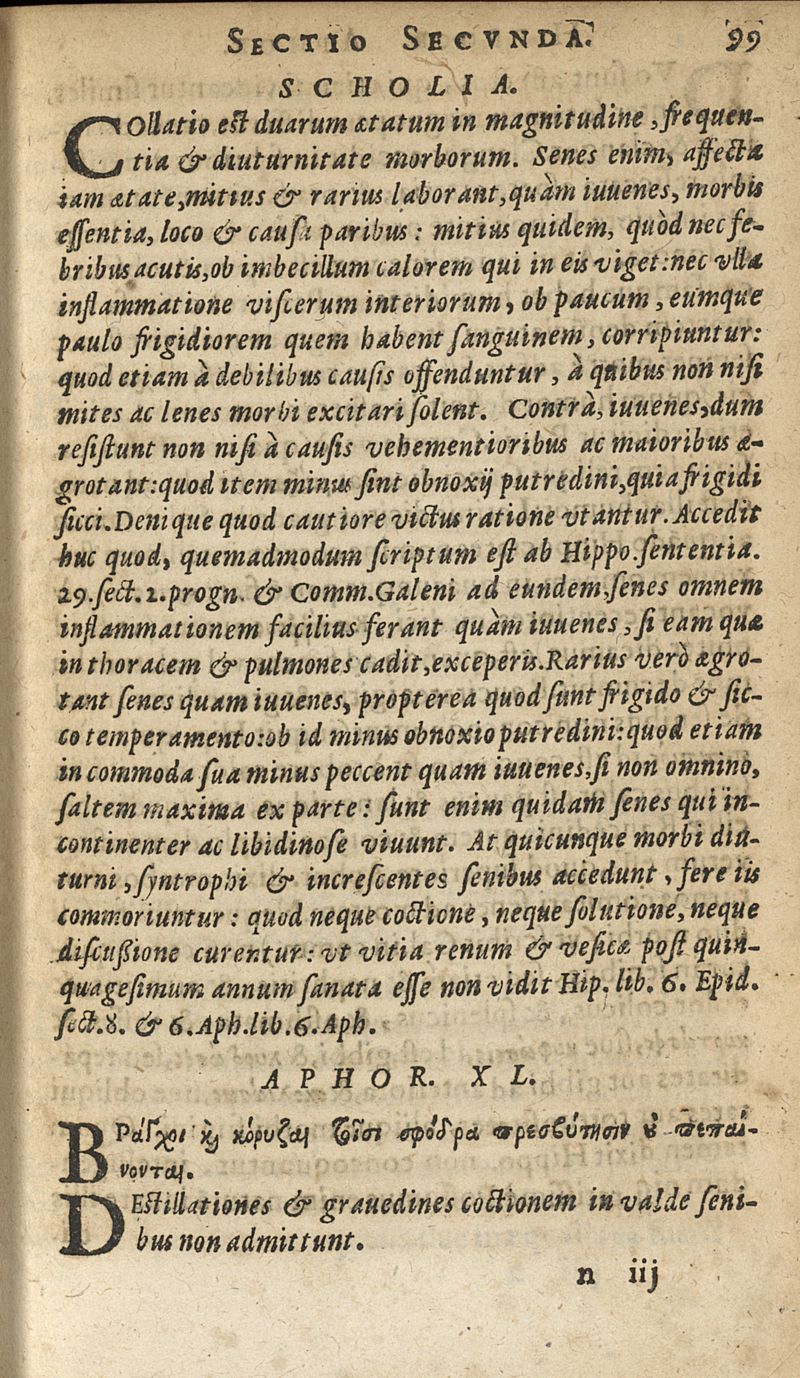 SECTIO SECVNDA. 99
SCHOLIA.
COllatio est duarum ætatum in magnitudine, frequen-
tia & diuturnitate morborum. Senes enim, affecta
iam ætate, mitius & rarius laborant, quàm iuuenes, morbis
essentia, loco & causa paribus: mitius quidem, quòd nec fe-
bribus acutis, ob imbecillum calorem qui in eis viget: nec vlla
inflammatione viscerum interiorum, ob paucum, eumque
paulo frigidiorem quem habent sanguinem, corripiuntur:
quod etiam à debilibus causis offenduntur, à quibus non nisi
mites ac lenes morbi excitari solent. Contrà, iuuenes, dum
resistunt non nisi à causis vehementioribus ac maioribus æ-
grotant: quod item minus sint obnoxij putredini, quia frigidi
sicci. Denique quod cautiore victus ratione vtantur. Accedit
huc quod, quemadmodum scriptum est ab Hippo. sententia.
29. sect. 2. progn. & Comm. Galeni ad eundem, senes omnem
inflammationem facilius ferant quàm iuuenes, si eam quæ
in thoracem & pulmones cadit, exceperis. Rarius verò ægro-
tant senes quam iuuenes, propterea quod sunt frigido & sic-
co temperamento: ob id minus obnoxio putredini: quod etiam
in commoda sua minus peccent quam iuuenes, si non omnino,
saltem maxima ex parte: sunt enim quidam senes qui in-
continenter ac libidinose viuunt. At quicunque morbi diu-
turni, syntrophi & increscentes senibus accedunt, fere iis
commoriuntur: quod neque coctione, neque solutione, neque
discußione curentur: vt vitia renum & vesicæ post quin-
quagesimum annum sanata esse non vidit Hip. lib. 6. Epid.
sect. 8. & 6. Aph. lib. 6. Aph.
APHOR. XL.
Βράγχοι καὶ κόρυζαι τοῖσι σφόδρα πρεσβύτῃσιν οὐ πεπαί-
νονται.
DEstillationes & grauedines coctionem in valde seni-
bus non admittunt.
n iij